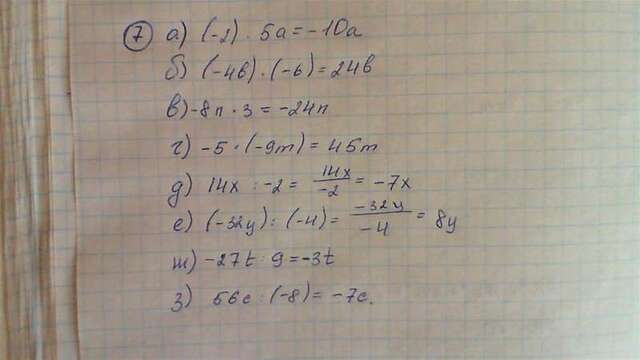 ⑦ а) (-2) · 5a = -10a
б) (-4в) · (-6) = 24в
в) -8n · 3 = -24n
г) -5 · (-9m) = 45m
д) 14x : -2 = 14x/-2 = -7x
е) (-32y) : (-4) = -32y/-4 = 8y
ж) -27t : 9 = -3t
з) 56c : (-8) = -7c.